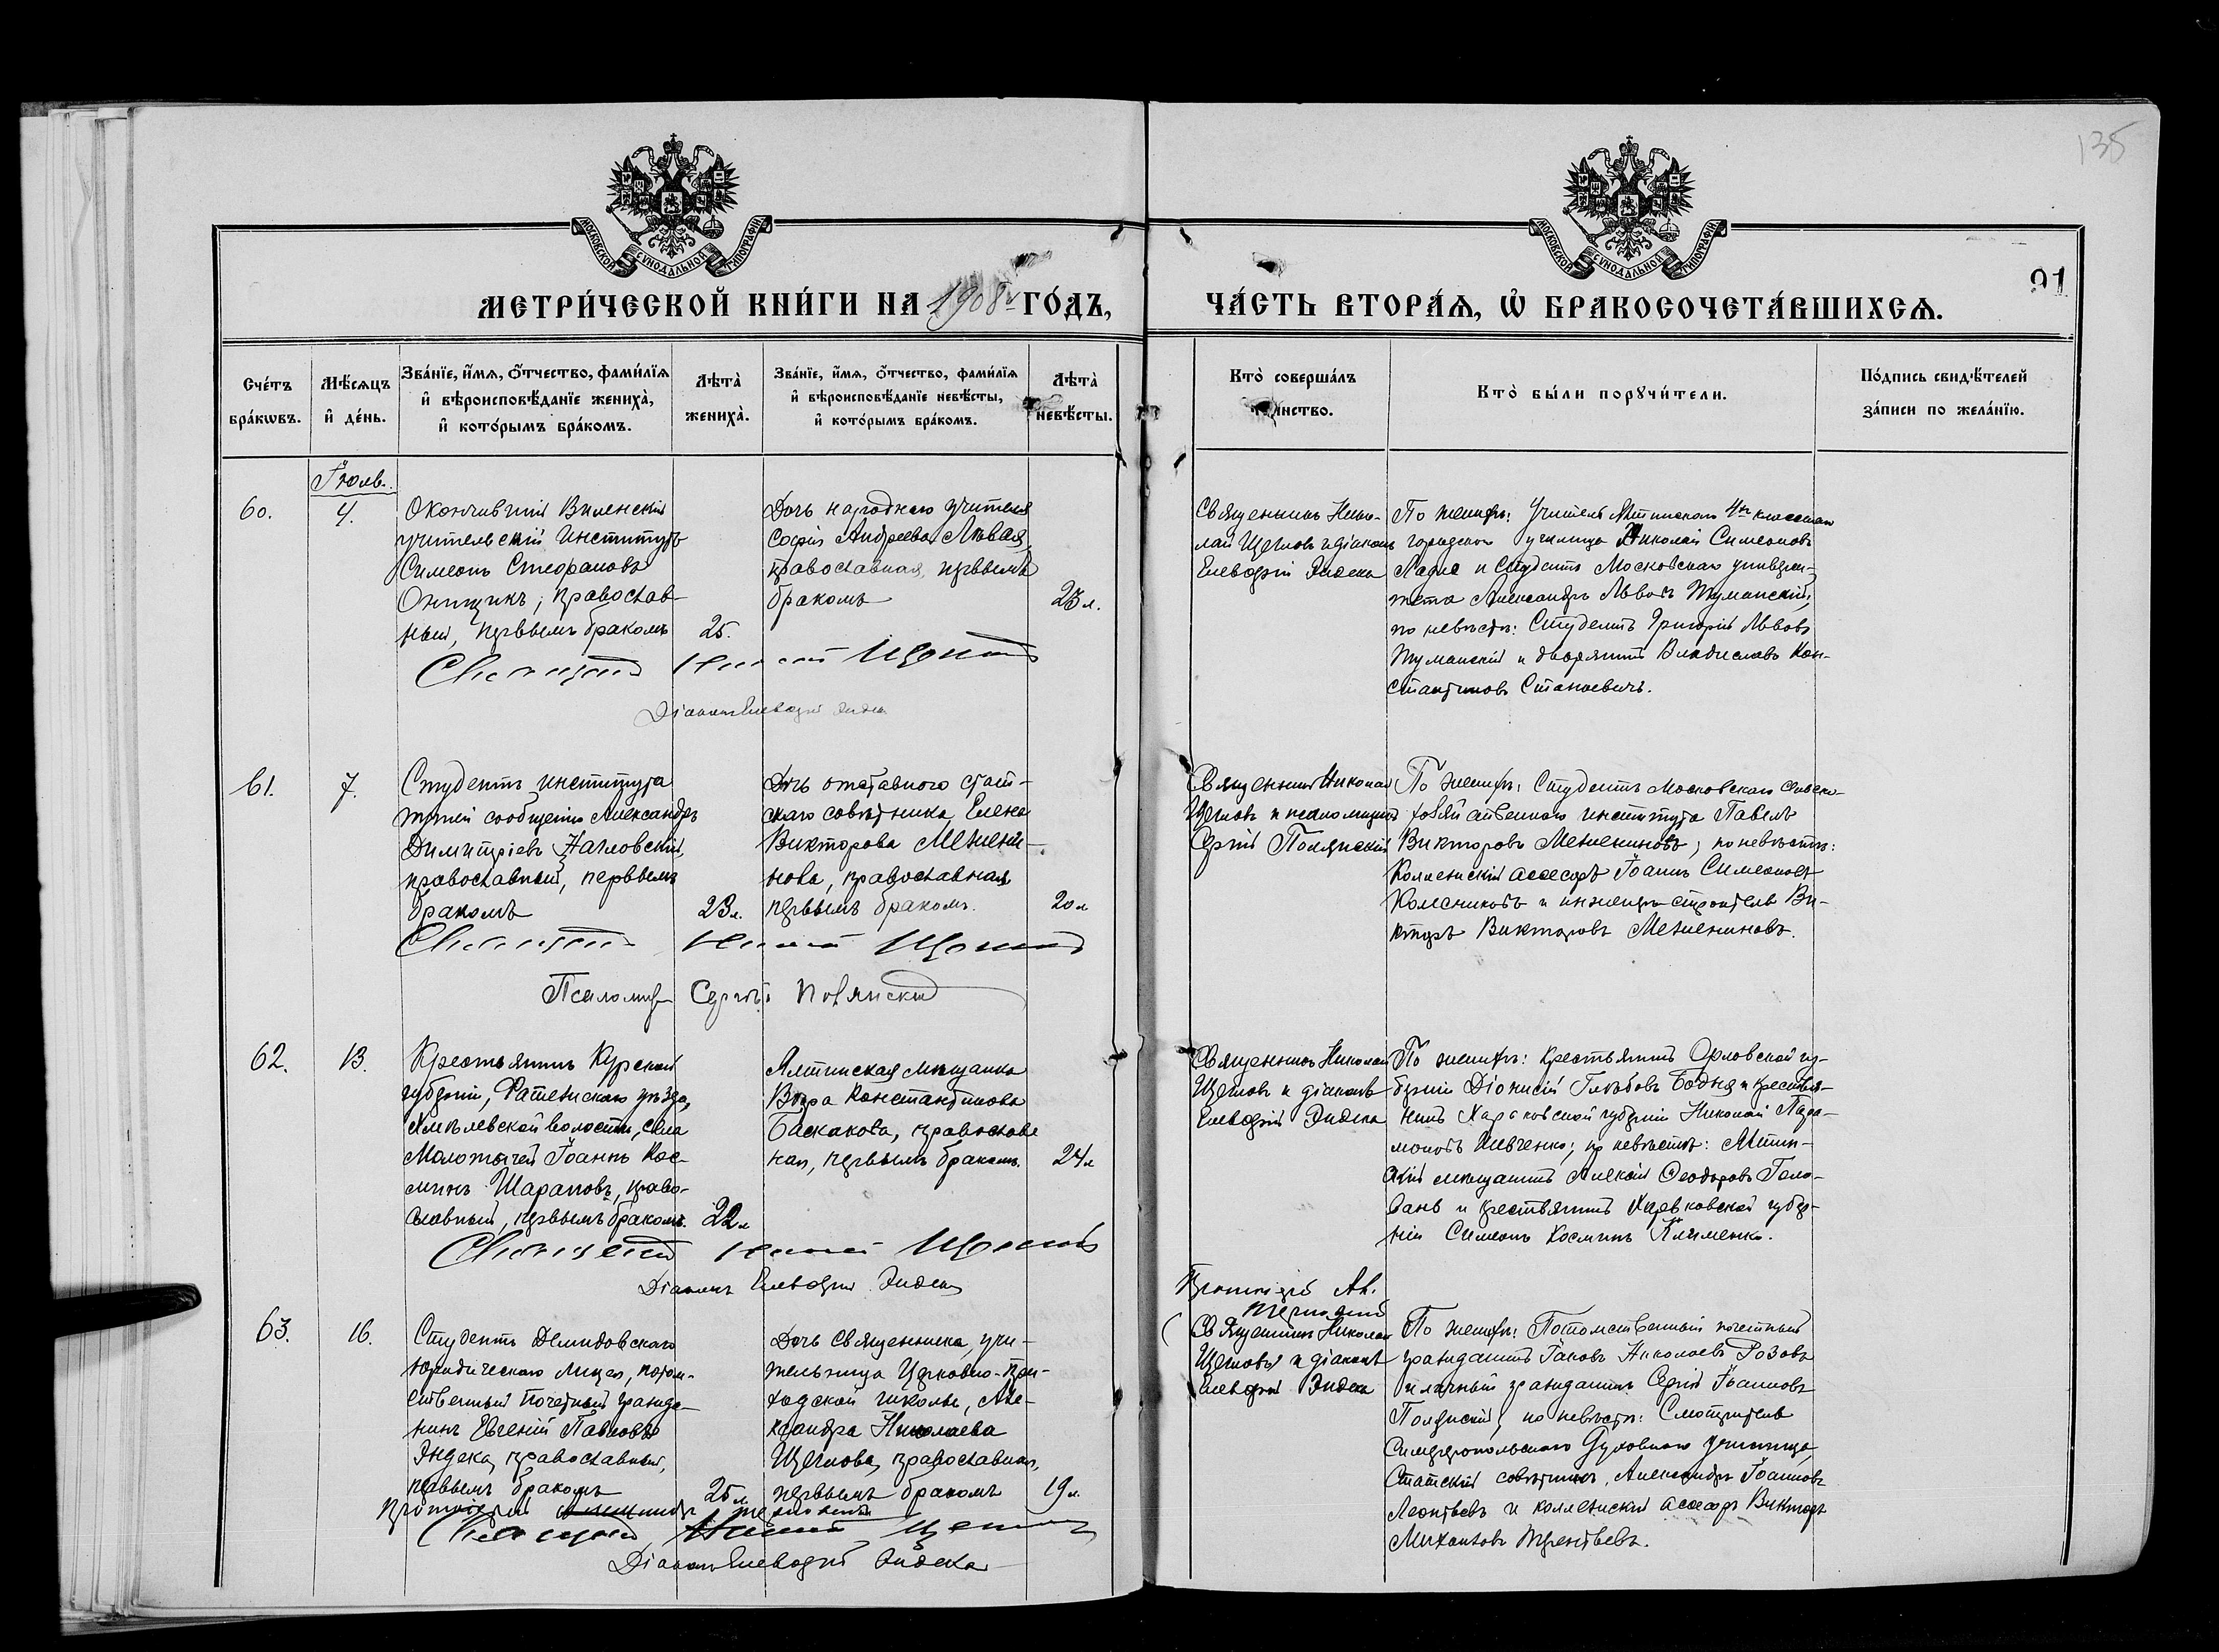 135
91
МОСКОВСКОЙ СѴНОДАЛЬНОЙ ТИПОГРАФІИ
МОСКОВСКОЙ СѴНОДАЛЬНОЙ ТИПОГРАФІИ
МЕТРИ́ЧЕСКОЙ КНИ́ГИ НА 1908 ГО́ДЪ,
ЧА́СТЬ ВТОРА́Ѧ, Ѡ҆ БРАКОСОЧЕТА́ВШИХСѦ.
Сче́тъ
бра́кѡвъ.
Мѣ́сѧцъ
и҆ де́нь.
Зва́нїе, и҆́мѧ, ѻ҆́тчество, фами́лїѧ
и҆ вѣроисповѣ́данїе жениха̀,
и҆ кото́рымъ бра́комъ.
Лѣта̀
жениха̀.
Зва́нїе, и҆́мѧ, ѻ҆́тчество, фами́лїѧ
и҆ вѣроисповѣ́данїе невѣ́сты,
и҆ кото́рымъ бра́комъ.
Лѣта̀
невѣ́сты.
Кто̀ соверша́лъ
таинство.
Кто̀ бы́ли порꙋчи́тели.
По́дпись свидѣ́телей
за́писи по жела́нїю.
Іюль.
60.
4.
Окончившій Виленскій
учительскій Институтъ
Симеонъ Стефановъ
Онищикъ, православ-
ный, первымъ бракомъ
25.
Дочь народнаго учителя
Софія Андреева Львая,
православная, первымъ
бракомъ
23 л.
Священникъ Нико-
лай Щегловъ и діаконъ
Елевферій Эндека
По женихѣ: Учитель Ялтинскаго 4хъ класснаго
городского училища Николай Симеоновъ
и Студентъ Московскаго универси-
тета Александръ Львовъ Туманскій,
по невѣстѣ: Студентъ Григорій Львовъ
Туманскій и дворянинъ Владиславъ Кон-
стантиновъ Станкевичъ.
Священникъ Николай Щегловъ
Діаконъ Елевферій Эндека
61.
7.
Студентъ института
путей сообщенія Александръ
Димитріевъ Начловскій,
православный, первымъ
бракомъ
23 л.
Дочь отставного стат-
скаго совѣтника, Елена
Викторова Меженин-
нова, православная
первымъ бракомъ.
20 л
Священникъ Николай
Щегловъ и псаломщикъ
Сергій Полянскій
По женихѣ: Студентъ Московскаго сельско-
хозяйственнаго института Павелъ
Викторовъ Меженинновъ; по невѣстѣ:
Коллежскій ассесоръ Іоаннъ Симеоновъ
Колесниковъ и инженеръ строитель Ви-
кторъ Викторовъ Меженинновъ.
Священникъ Николай Щегловъ
Псаломщ. Сергѣй Полянскій
62.
13.
Крестьянинъ Курской
губерніи, Фатежскаго уѣзда,
Хмѣлевской волости, села
Молотычей Іоаннъ Кос-
минъ Шараповъ, право-
славный, первымъ бракомъ.
22 л
Ялтинская мѣщанка
Вѣра Константинова
Баскакова, православ
ная, первымъ бракомъ.
24 л
Священникъ Николай
Щегловъ и діаконъ
Елевферій Эндека
По женихѣ: Крестьянинъ Орловской гу-
берніи Діонисій Глѣбовъ Бодня и крестья-
нинъ Харьковской губерніи Николай Пара-
моновъ Шевченко; по невѣстѣ: Ялтин-
скій мѣщанинъ Алексій Ѳеодоровъ Голо-
вань и крестьянинъ Харьковской губер-
ніи Симеонъ Косминъ Клименко.
Священникъ Николай Щегловъ
Діаконъ Елевферій Эндека
63.
16.
Студентъ Демидовскаго
юридическаго лицея, потом-
ственный почетный гражда-
нинъ Евгеній Павловъ
Эндека, православный,
первымъ бракомъ
25 л
Дочь священника, учи-
тельница Церковно-при-
ходской школы, Але-
ксандра Николаева
Щеглова, православная,
первымъ бракомъ
19 л.
Протоіерей Ал.
Терновскій
Священникъ Николай
Щегловъ и діаконъ
Елевферій Эндека
По женихѣ: Потомственный почетный
гражданинъ Іаковъ Николаевъ Розовъ
и личный гражданинъ Сергій Іоанновъ
Полянскій, по невѣстѣ: Смотритель
Симферопольскаго Духовнаго училища,
Статскій совѣтникъ, Александръ Іоанновъ
Леонтьевъ и коллежскій ассесоръ Викторъ
Михаиловъ Терентьевъ.
Протоіерей Терновскій
Священникъ Николай Щегловъ
Діаконъ Елевферій Эндека